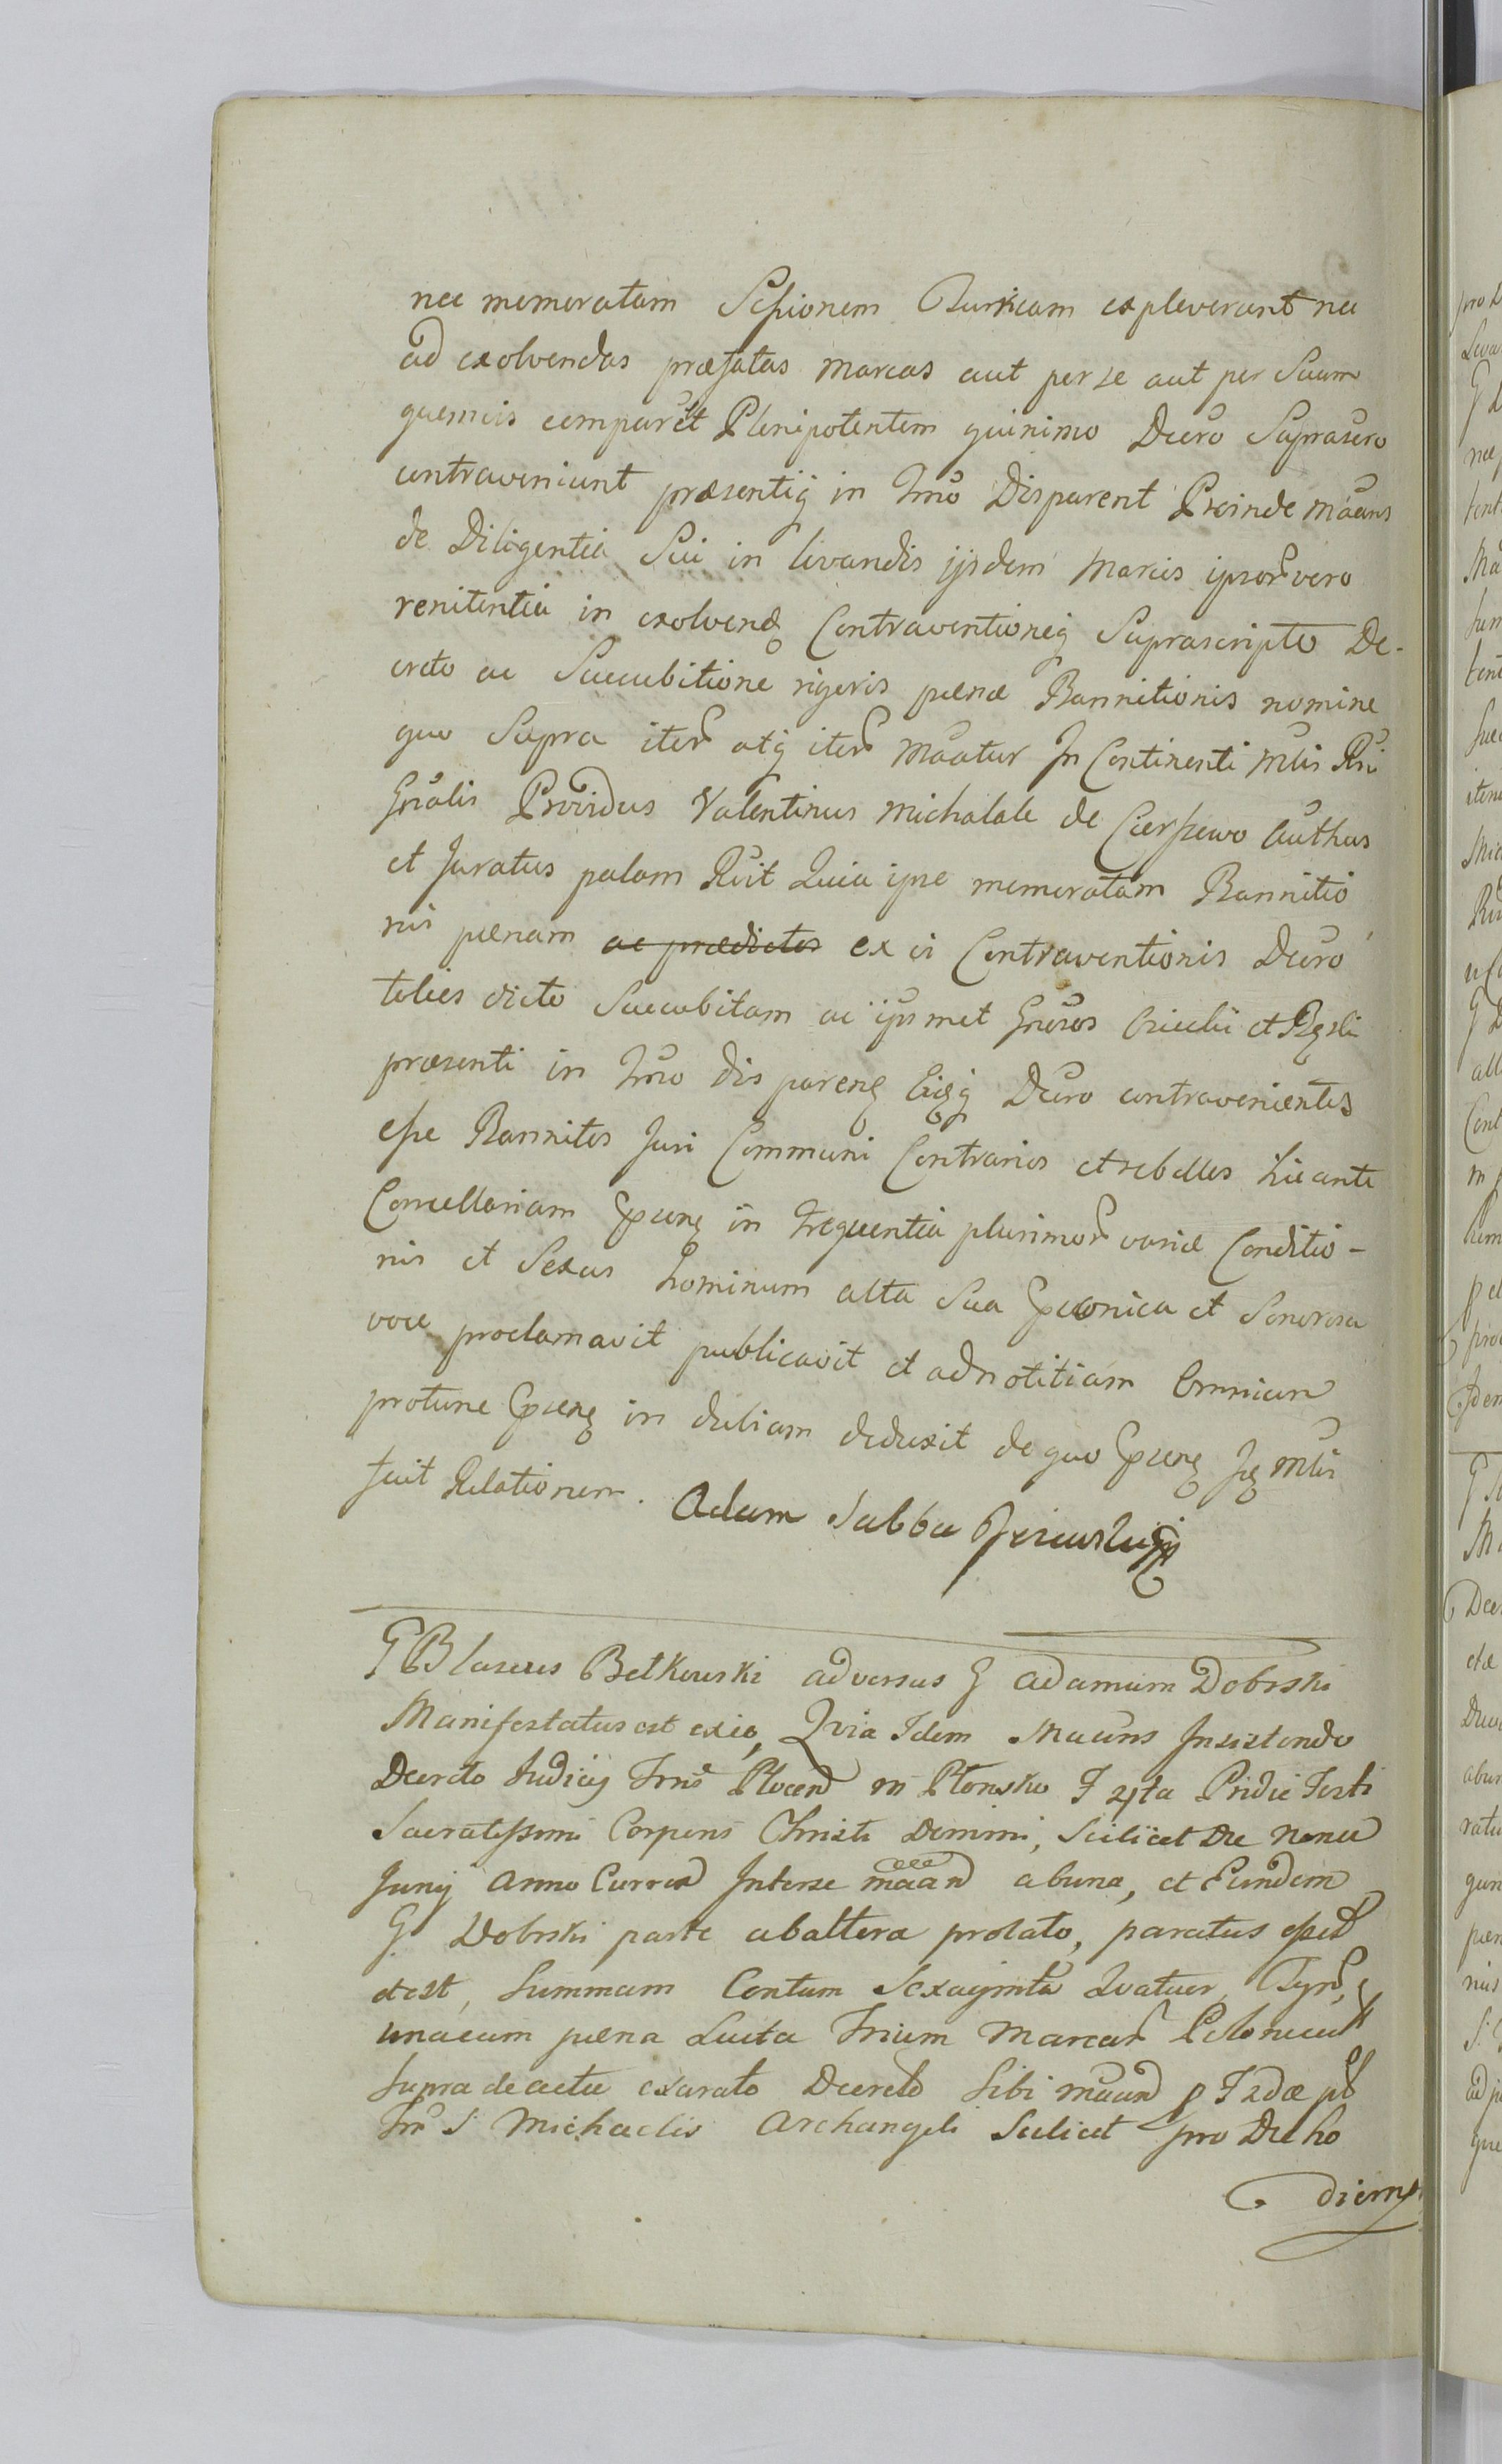 nec memoratam Sessionem Turricam expleverunt nec
ad exolvendas præfatas marcas aut per se aut per Suum
quemvis comparūt Plenipotentem quinimo Dcero Suprascro
contraveniunt præsentiq in Trno Disparent Proinde Mãans
de Diligentia Sui in levandis ijsdem Marcis ipsor vero
renitentia in exolvend Contraventioneq Suprascripto De-
creto ac Succubitione rigoris pænæ Bannitionis nomine
quo Supra iter atq iter Mãatur In Continenti Mlis Rni
Gnalis Providus Valentinus Michalak de Cierszewo Authus
et Juratus palam Rvit Quia ipse memoratam Bannitio
nis pænam ac prædictos ex vi Contraventionis Dcero
toties dicto Succubitam ac ipsmet Gnosos et
præsenti in Trno dis paren Dcero contravenientes
esse Bannitos Juri Communi Contrarios et rebelles hic ante
Cancellariam in frequentia plurimor variæ Conditio-
nis et Sexus hominum alta Sua et Sonorosa
voce proclamavit publicavit et ad notitiam Omnium
protunc in dubiam deduxit de quo Mlis
fecit Relationem. Adam
G Blasius Betkowski adversus G Adamum Dobrski
Manifestatus est exio, Quia Idem Maans Insistendo
Decreto Judicij Trns Plocen in Plonsko F 4ta Pridie Festi
Sacratissimi Corporis Christi Domini, Scilicet Die Nona
Junij Anno Curren Interse mãan ab una, et Eundem
G Dobrski parte ab altera prolato, paratus
et est, Summam Centum Sexaginta Quatuor Tynf,
unacum pæna Luita Trium Marcar Polonical
Supra de actu exarato Decreto Sibi mãand p F 2dæ pt
Fm S Michaelis Archangeli Scilicet pro Die ho
diern